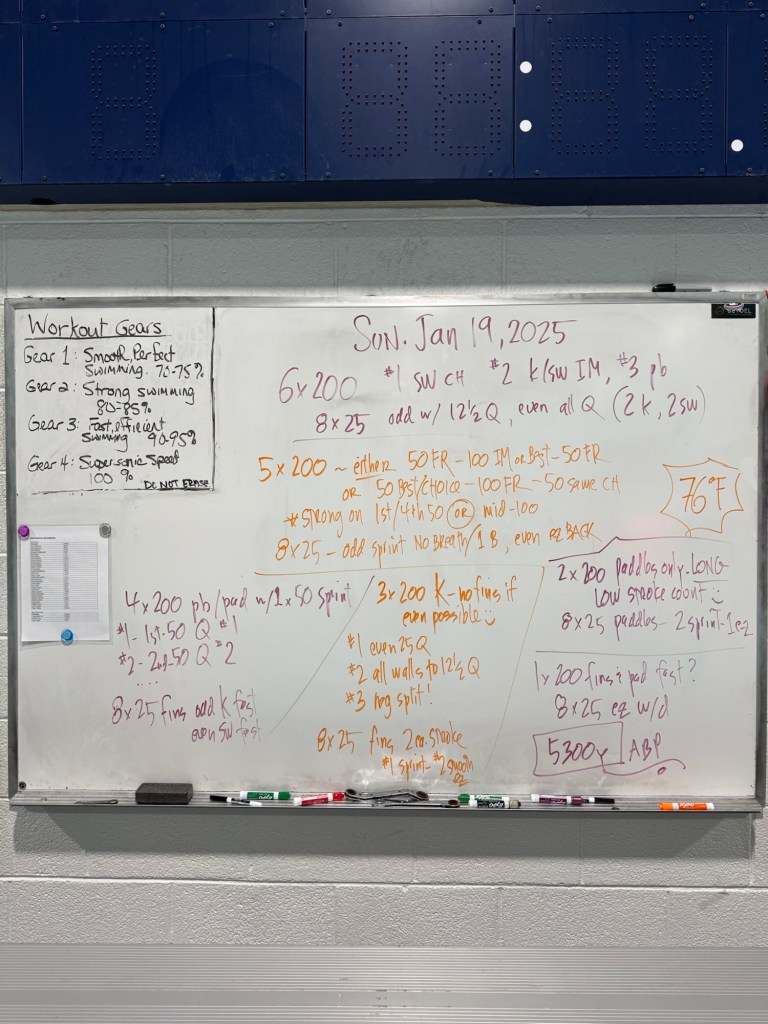 Workout Gears
Gear 1: Smooth, Perfect
Swimming 70-75%
Gear 2: Strong swimming
80-85%
Gear 3: Fast, efficient
swimming 90-95%
Gear 4: Supersonic Speed
100 %
DO NOT ERASE
SUN. Jan 19, 2025
6x200 #1 SW CH #2 K/SW IM, #3 pb
8x25 odd w/ 12½ Q, even all Q (2K, 2SW)
5x200 ~ either 50 FR - 100 IM or Best - 50 FR
OR 50 Best/CHOICE - 100 FR - 50 same CH
* strong on 1st/4th 50 OR mid-100
8x25 - odd sprint No Breath/1 B, even ez BACK
76°F
4x200 pb/pad w/1x50 sprint
#1 - 1st-50 Q #1
#2 - 2nd-50 Q #2
....
8x25 fins odd K fast
even SW fast
3x200 K - no fins if
even possible
#1 even 25 Q
#2 all walls to 12½ Q
#3 neg split!
8x25 fins 2 stroke
#1 sprint - #2 smooth
ez
2x200 paddles only - LONG
LOW stroke count
8x25 paddles - 2 sprint - 1 ez
1x200 fins & pad fast?
8x25 ez w/d
5300y ABP